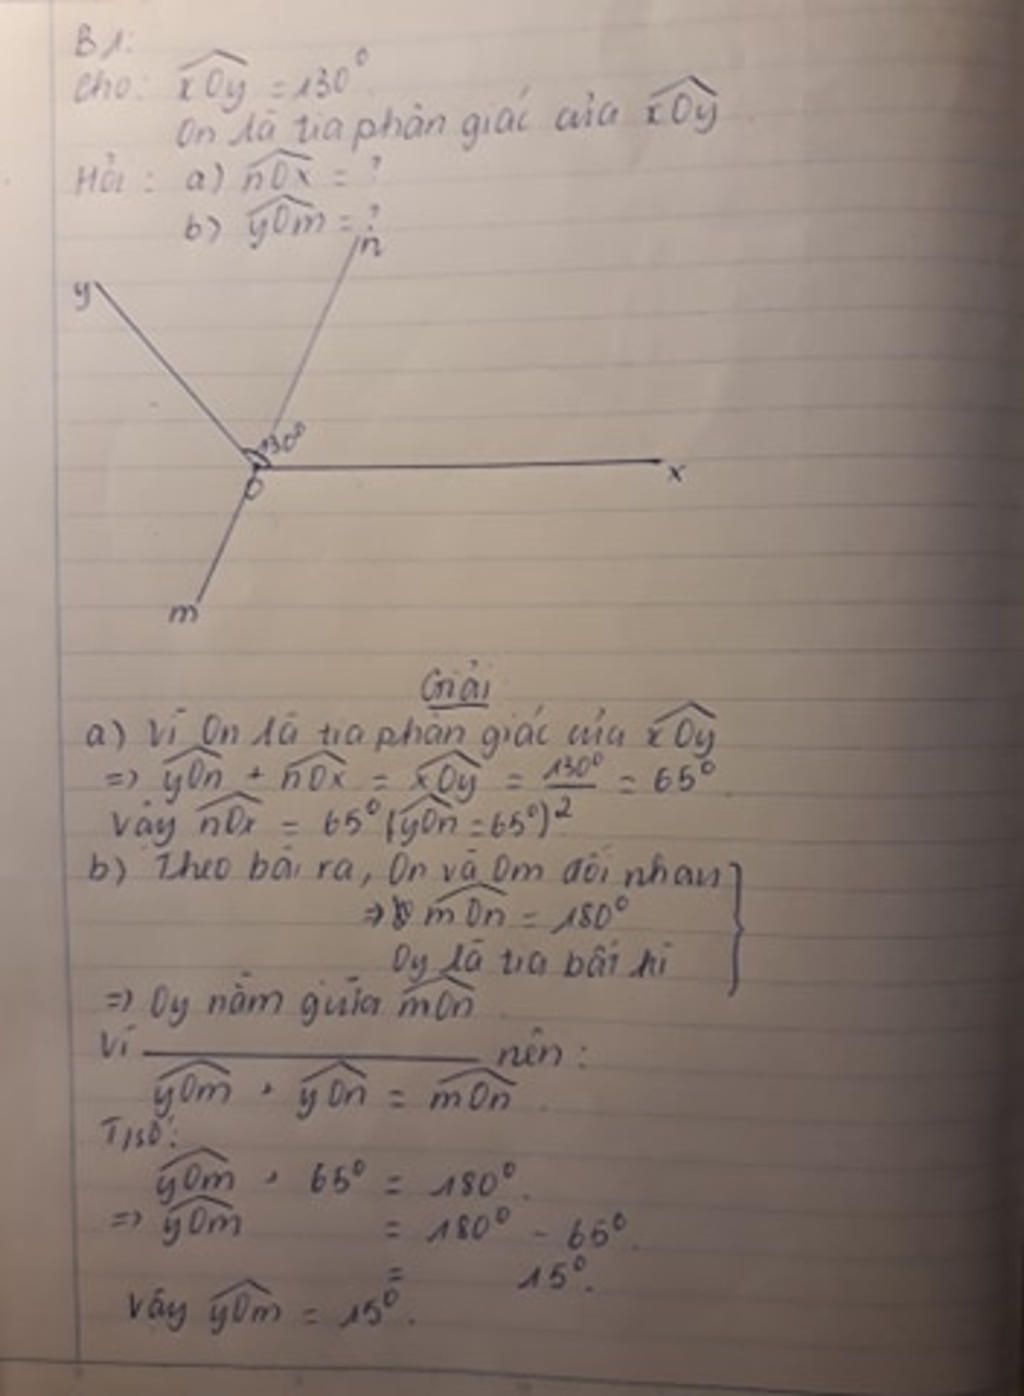 B1:
Cho: xOy = 130°
On là tia phân giác của xOy
Hỏi: a) nOx = ?
b) yOm = ?
n
y
130°
O
x
m
Giải
a) Vì On là tia phân giác của xOy
=> yOn + nOx = xOy = 130°/2 = 65°
Vậy nOx = 65° (yOn = 65°)
b) Theo bài ra, On và Om đối nhau
=> mOn = 180°
Oy là tia bất kì
=> Oy nằm giữa mOn
Vì nên:
yOm + yOn = mOn
T/số:
yOm + 65° = 180°.
=> yOm = 180° - 65°.
= 15°.
Vậy yOm = 15°.